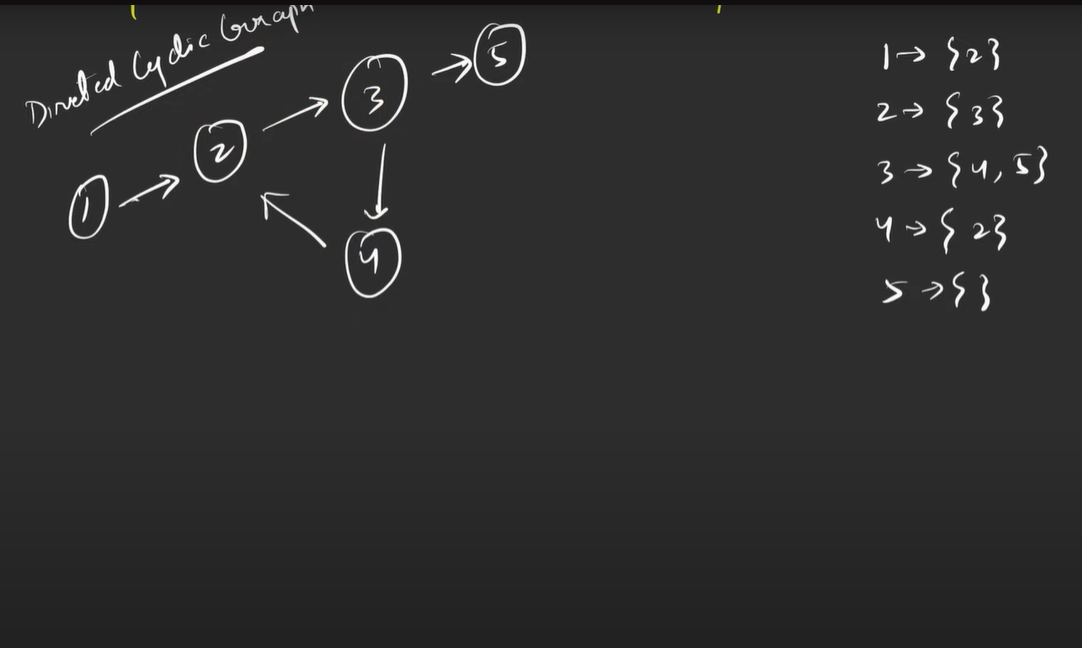 Directed Cyclic Graph
1
2
3
5
4
1 → {2}
2 → {3}
3 → {4, 5}
4 → {2}
5 → { }